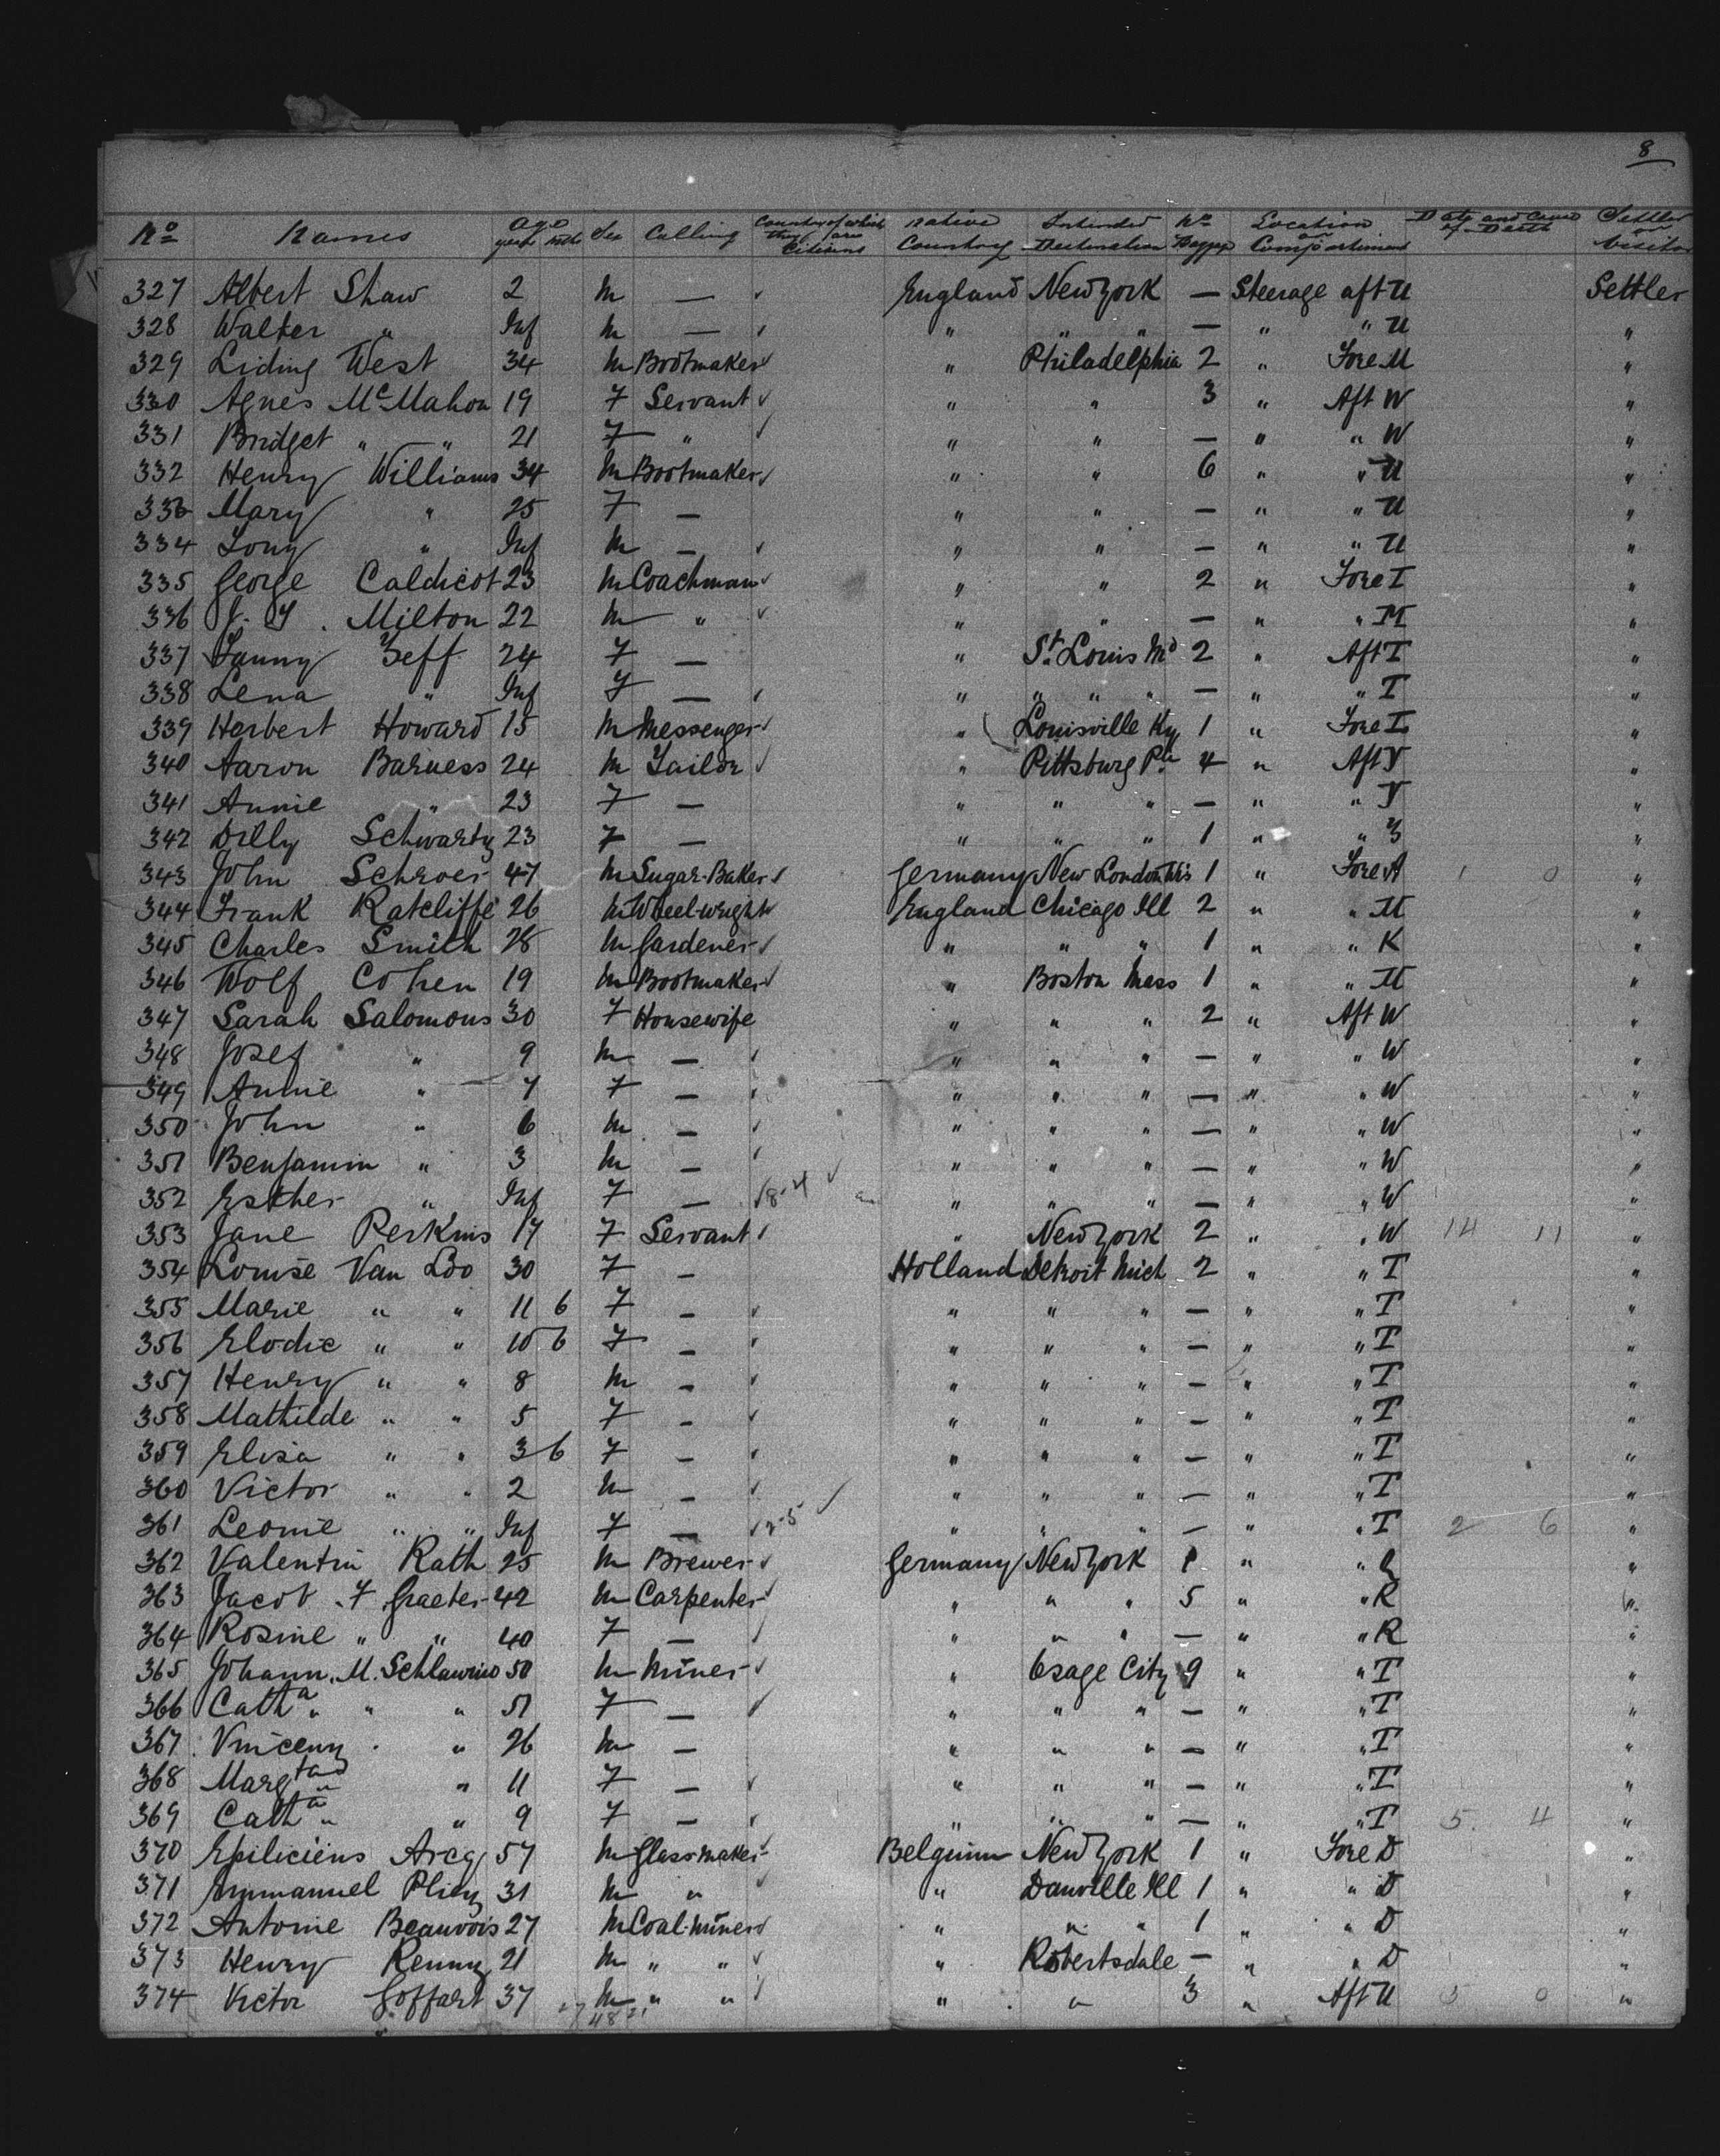 8
No Names Age year mth Sex Calling Country of which they are Citizens Native Country Intended Destination No Bagge Location or Compartment Date and Cause of Death Settler or Visitor
327 Albert Shaw 2 M — ✓ England New York — Steerage aft U Settler
328 Walter " Inf M — ✓ " " " — " " U "
329 Liding West 34 M Bootmaker ✓ " Philadelphia 2 " Fore M "
330 Agnes McMahon 19 F Servant ✓ " " 3 " Aft W "
331 Bridget " " 21 F " ✓ " " — " " W "
332 Henry Williams 34 M Bootmaker ✓ " " 6 " " U "
333 Mary " 25 F — " " — " " U "
334 Tony " Inf M — ✓ " " — " " U "
335 George Caldicot 23 M Coachman ✓ " " 2 " Fore I "
336 J. Milton 22 M " ✓ " " — " " M "
337 Fanny Zeff 24 F — " St. Louis Md 2 " Aft T "
338 Lena " Inf F — ✓ " " " " — " " T "
339 Herbert Howard 15 M Messenger ✓ " Louisville Ky 1 " Fore I "
340 Aaron Barness 24 M Tailor ✓ " Pittsburg Pa 4 " Aft Y "
341 Annie " 23 F — " " " — " " Y "
342 Dilly Schwartz 23 F — " " " 1 " " Z "
343 John Schroer 47 M Sugar-Baker ✓ Germany New London Wis 1 " Fore A 1 0 "
344 Frank Ratcliffe 26 M Wheel-wright ✓ England Chicago Ill 2 " " M "
345 Charles Smith 28 M Gardener ✓ " " " 1 " " K "
346 Wolf Cohen 19 M Bootmaker ✓ " Boston Mass 1 " " M "
347 Sarah Salomons 30 F Housewife " " " 2 " Aft W "
348 Josef " 9 M — ✓ " " " — " " W "
349 Annie " 7 F — ✓ " " " — " " W "
350 John " 6 M — ✓ " " " — " " W "
351 Benjamin " 3 M — ✓ " " " — " " W "
352 Esther " Inf F — ✓ 8-4 ✓ " " " — " " W "
353 Jane Perkins 17 F Servant ✓ " New York 2 " " W 14 11 "
354 Louise Van Loo 30 F — Holland Detroit Mich 2 " " T "
355 Marie " " 11 6 F — ✓ " " " — " " T "
356 Elodie " " 10 6 F — ✓ " " " — " " T "
357 Henry " " 8 M — ✓ " " " — " " T "
358 Mathilde " " 5 F — ✓ " " " — " " T "
359 Elisa " " 3 6 F — ✓ " " " — " " T "
360 Victor " " 2 M — ✓ " " " — " " T "
361 Leonie " " Inf F — ✓ 2-5 ✓ " " " — " " T 2 6 "
362 Valentin Rath 25 M Brewer ✓ Germany New York 1 " " "
363 Jacob F. Graeter 42 M Carpenter ✓ " " " 5 " " R "
364 Rosine " " 40 F — ✓ " " " — " " R "
365 Johann M. Schlawino 50 M Miner ✓ " Osage City 9 " " T "
366 Catha " " " 51 F — ✓ " " " — " " T "
367 Vincenz " " 26 M — " " " — " " T "
368 Margtand " " 11 F — ✓ " " " — " " T "
369 Catha " " 9 F — ✓ " " " — " " T 5 4 "
370 Epiliciens Arcq 57 M Glassmaker ✓ Belgium New York 1 " Fore D "
371 Emmanuel Pliez 31 M " ✓ " Danville Ill 1 " " D "
372 Antoine Beauvois 27 M Coal-Miner ✓ " " " 1 " " D "
373 Henry Renuy 21 M " " ✓ " Robertsdale — " " D "
374 Victor Goffart 37 M " " ✓ " " 3 " Aft U 5 0 "
27 48 21